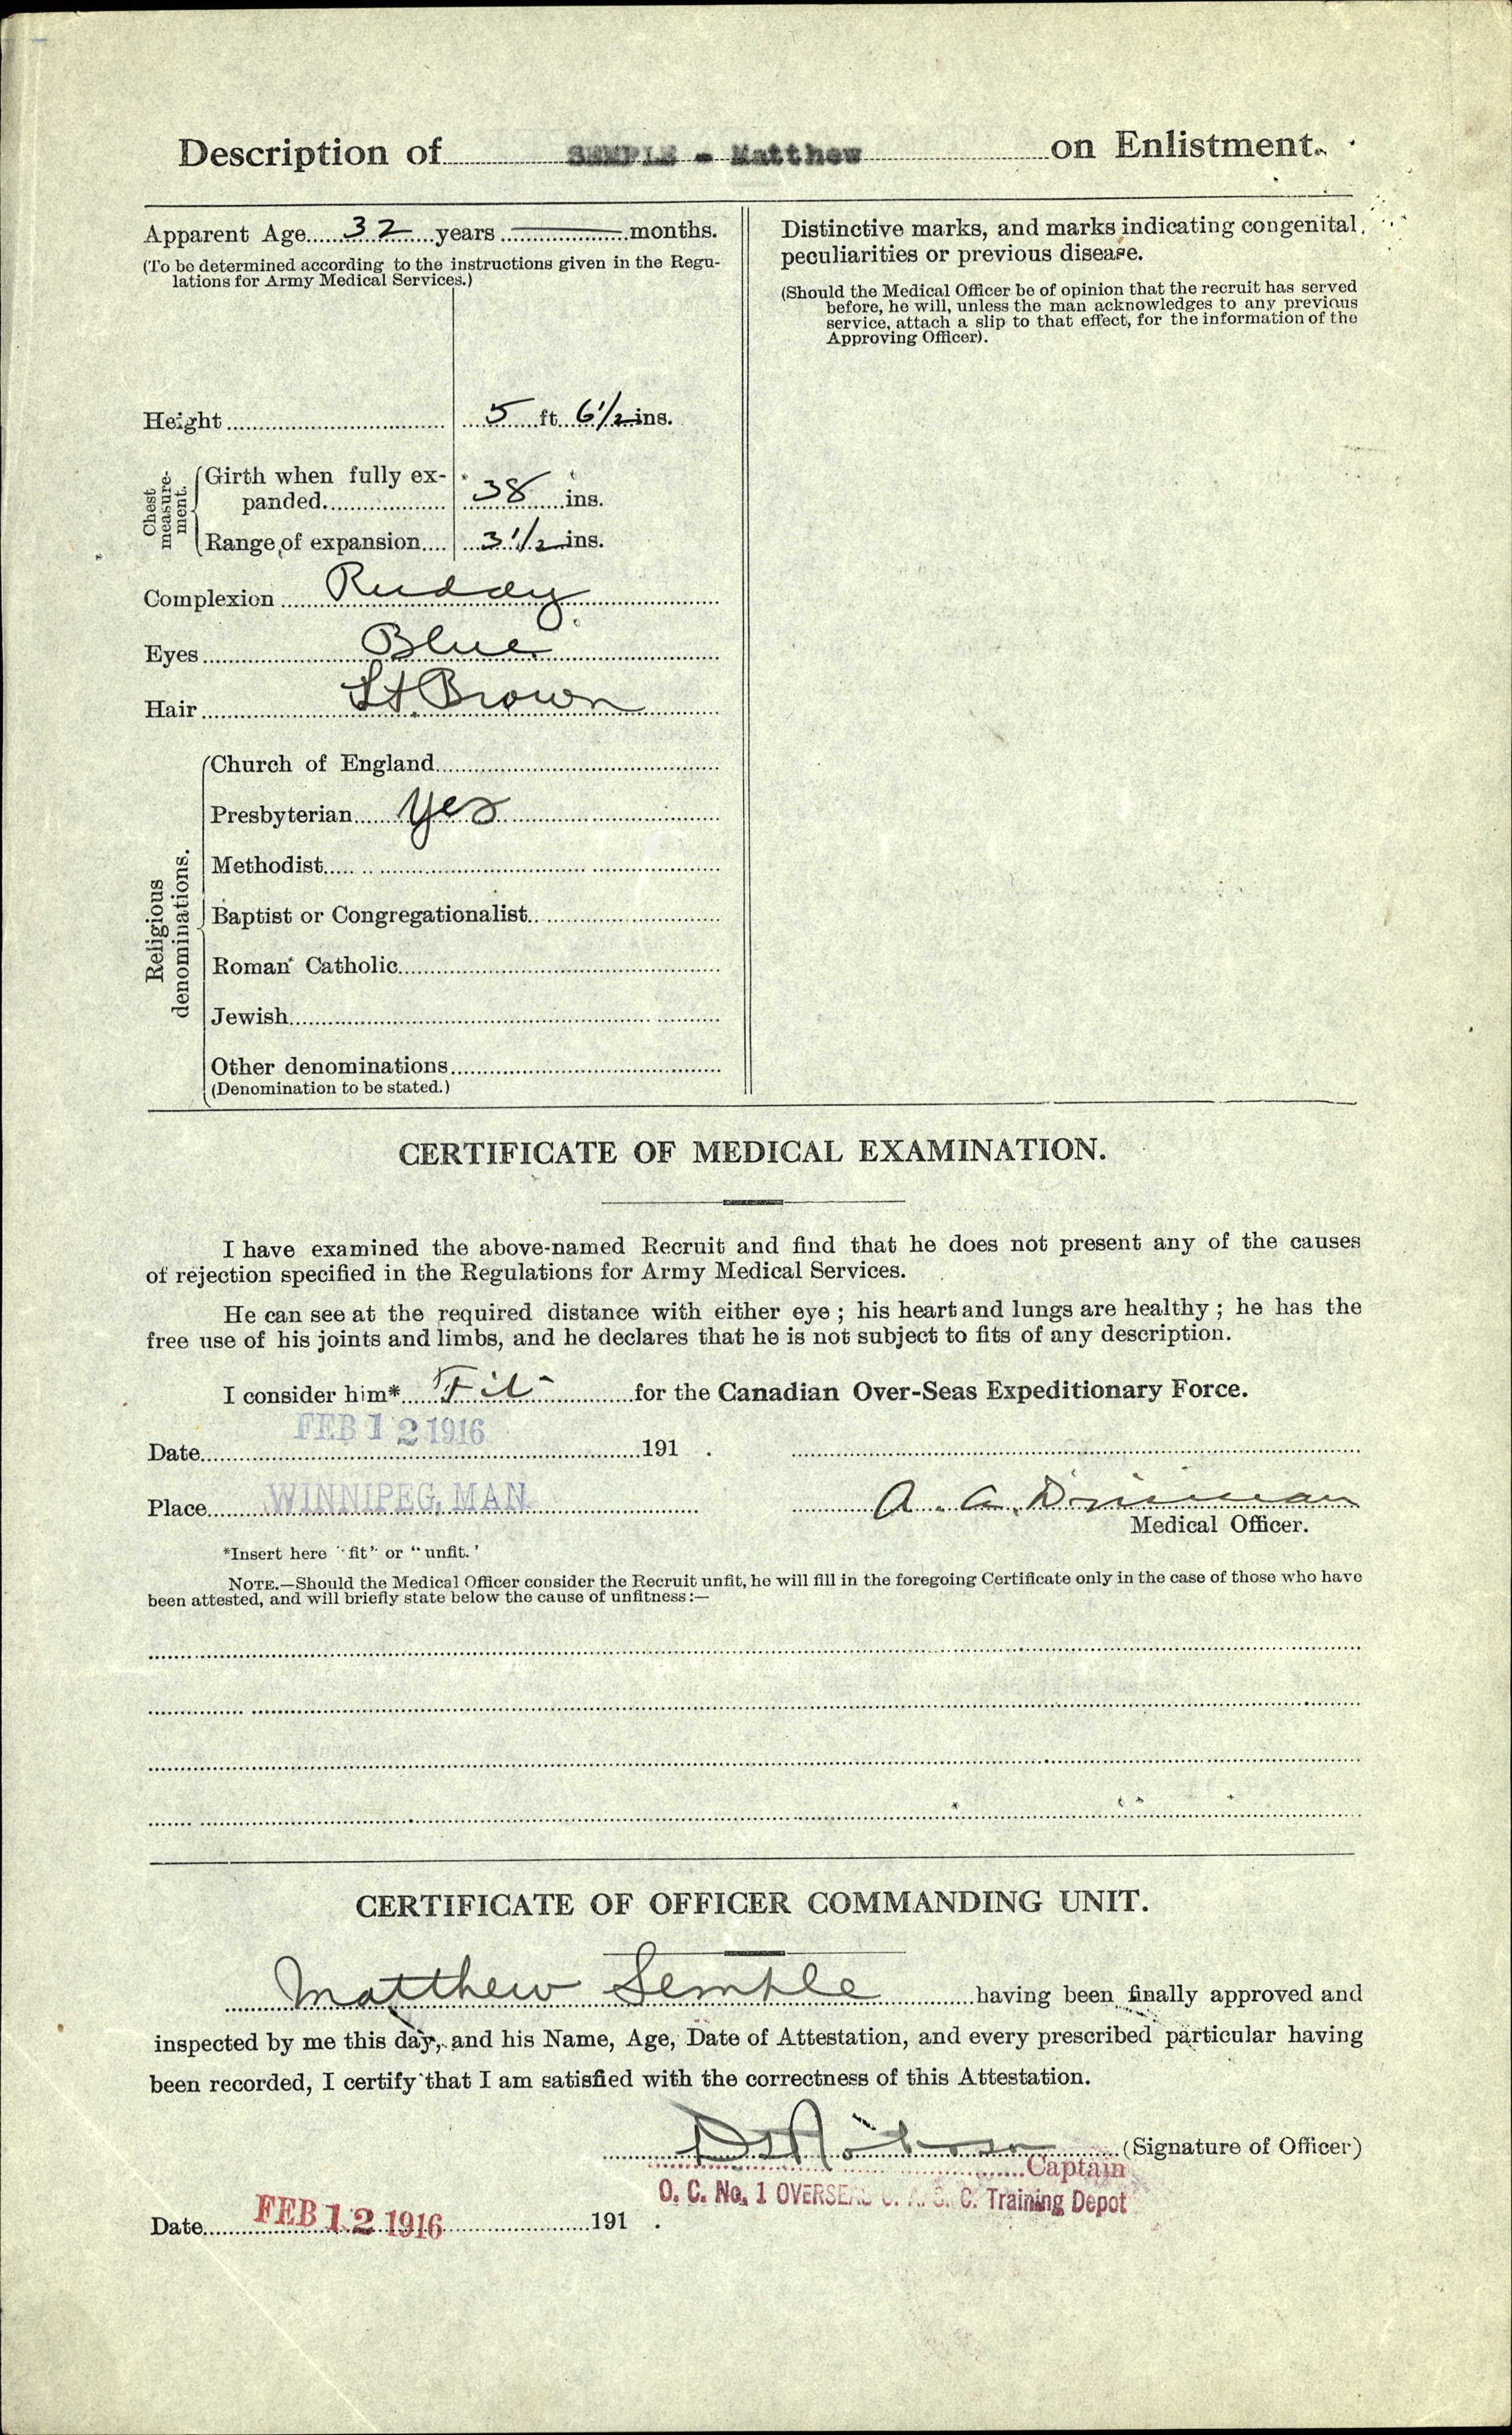 Description of SEMPLE - Matthew on Enlistment.
Apparent Age 32 years months.
(To be determined according to the instructions given in the Regu-
lations for Army Medical Services.)
Height 5 ft 6 1/2 ins.
Chest measure-ment.
Girth when fully ex-
panded 38 ins.
Range of expansion 3 1/2 ins.
Complexion Ruddy
Eyes Blue
Hair Lt. Brown
Religious denominations.
Church of England
Presbyterian Yes
Methodist
Baptist or Congregationalist
Roman Catholic
Jewish
Other denominations
(Denomination to be stated.)
Distinctive marks, and marks indicating congenital
peculiarities or previous disease.
(Should the Medical Officer be of opinion that the recruit has served
before, he will, unless the man acknowledges to any previous
service, attach a slip to that effect, for the information of the
Approving Officer).
CERTIFICATE OF MEDICAL EXAMINATION.
I have examined the above-named Recruit and find that he does not present any of the causes
of rejection specified in the Regulations for Army Medical Services.
He can see at the required distance with either eye ; his heart and lungs are healthy ; he has the
free use of his joints and limbs, and he declares that he is not subject to fits of any description.
I consider him* Fit for the Canadian Over-Seas Expeditionary Force.
Date FEB 12 1916 191 .
Place WINNIPEG, MAN.
A. A.
Medical Officer.
*Insert here "fit" or "unfit.'
NOTE.—Should the Medical Officer consider the Recruit unfit, he will fill in the foregoing Certificate only in the case of those who have
been attested, and will briefly state below the cause of unfitness:—
CERTIFICATE OF OFFICER COMMANDING UNIT.
Matthew Semple having been finally approved and
inspected by me this day, and his Name, Age, Date of Attestation, and every prescribed particular having
been recorded, I certify that I am satisfied with the correctness of this Attestation.
(Signature of Officer)
Captain
O. C. No. 1 OVERSEAS C. A. S. C. Training Depot
Date FEB 12 1916 191 .